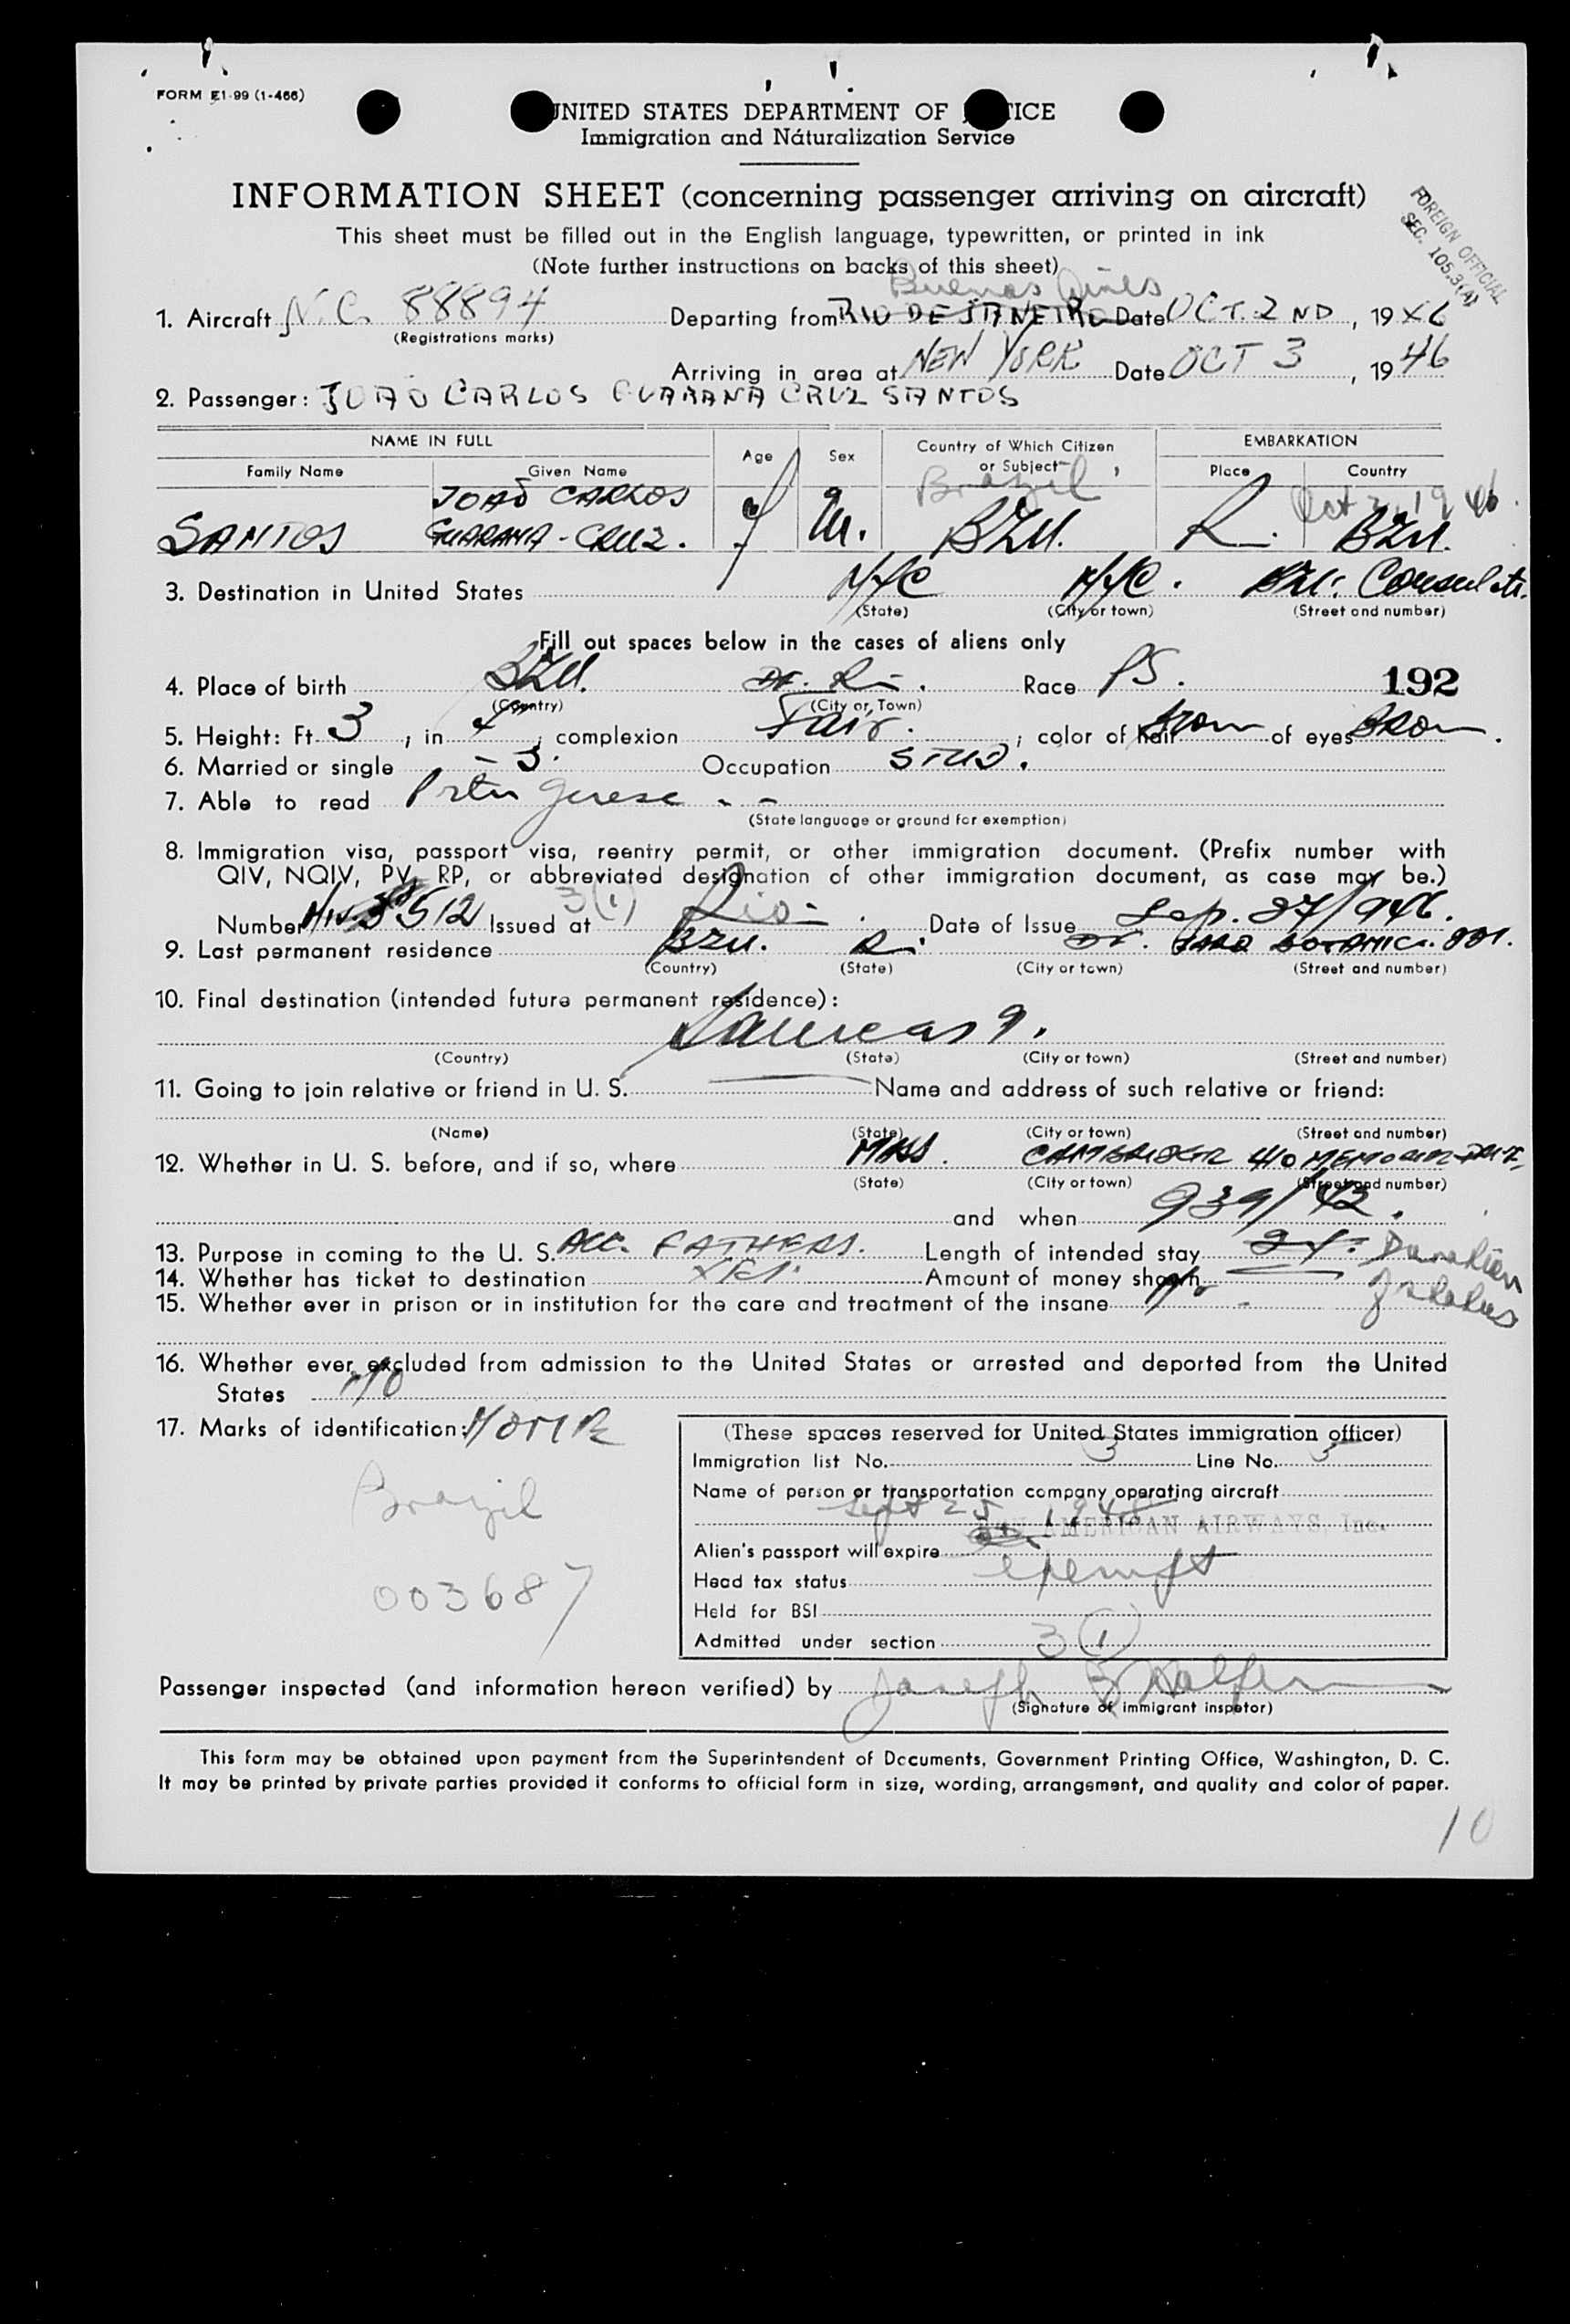 FORM E1-99 (1-466)
UNITED STATES DEPARTMENT OF TICE
Immigration and Naturalization Service
INFORMATION SHEET (concerning passenger arriving on aircraft)
FOREIGN OFFICIAL
SEC. 105.3(A)
This sheet must be filled out in the English language, typewritten, or printed in ink
(Note further instructions on backs of this sheet)
Buenos Aires
1. Aircraft N.C. 88894 Departing from RIO DE JANEIRO Date OCT. 2 ND, 19 46
(Registrations marks)
Arriving in area at NEW YORK Date OCT 3, 19 46
2. Passenger: JOAO CARLOS GUARANA CRUZ SANTOS
NAME IN FULL Age Sex Country of Which Citizen or Subject EMBARKATION
Family Name Given Name Place Country
JOAO CARLOS Brazil Oct 2, 1946
SANTOS GUARANA-CRUZ. M. BZU. R. BZU.
3. Destination in United States NYC NYC. BZU. Consulate.
(State) (City or town) (Street and number)
Fill out spaces below in the cases of aliens only
4. Place of birth BZU. Race PS. 192
(Country) (City or Town)
5. Height: Ft. 3, in ; complexion Fair. ; color of hair Brown of eyes Brown.
6. Married or single - S. Occupation STUD.
7. Able to read Portuguese - -
(State language or ground for exemption)
8. Immigration visa, passport visa, reentry permit, or other immigration document. (Prefix number with
QIV, NQIV, PV, RP, or abbreviated designation of other immigration document, as case may be.)
3(1)
Number 512 Issued at Rio - . Date of Issue Sep. 27/946.
9. Last permanent residence BZU. R.
(Country) (State) (City or town) (Street and number)
10. Final destination (intended future permanent residence):
Same as 9.
(Country) (State) (City or town) (Street and number)
11. Going to join relative or friend in U. S. Name and address of such relative or friend:
(Name) (State) (City or town) (Street and number)
12. Whether in U. S. before, and if so, where MASS. CAMBRIDGE 410 MEMORIAL DRIVE,
(State) (City or town) (Street and number)
and when 939/42.
13. Purpose in coming to the U. S. ACC. FATHERS. Length of intended stay 2 Y. Duration
14. Whether has ticket to destination YES. Amount of money shown of status
15. Whether ever in prison or in institution for the care and treatment of the insane No -
16. Whether ever excluded from admission to the United States or arrested and deported from the United
States NO
17. Marks of identification: NONE
Brazil
003687
(These spaces reserved for United States immigration officer)
Immigration list No. 3 Line No. 5
Name of person or transportation company operating aircraft
Sept 25 1948
AMERICAN AIRWAYS, Inc.
Alien's passport will expire
Head tax status exempt
Held for BSI
Admitted under section 3(1)
Passenger inspected (and information hereon verified) by Joseph
(Signature of immigrant inspetor)
This form may be obtained upon payment from the Superintendent of Documents, Government Printing Office, Washington, D. C.
It may be printed by private parties provided it conforms to official form in size, wording, arrangement, and quality and color of paper.
10